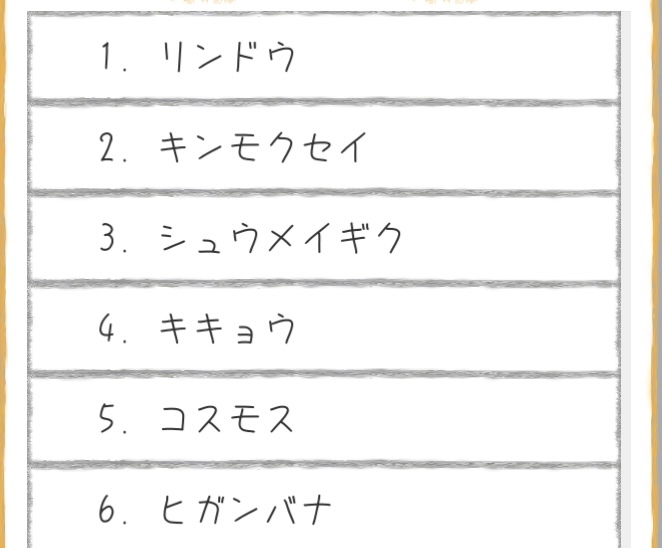 1. リンドウ
2. キンモクセイ
3. シュウメイギク
4. キキョウ
5. コスモス
6. ヒガンバナ